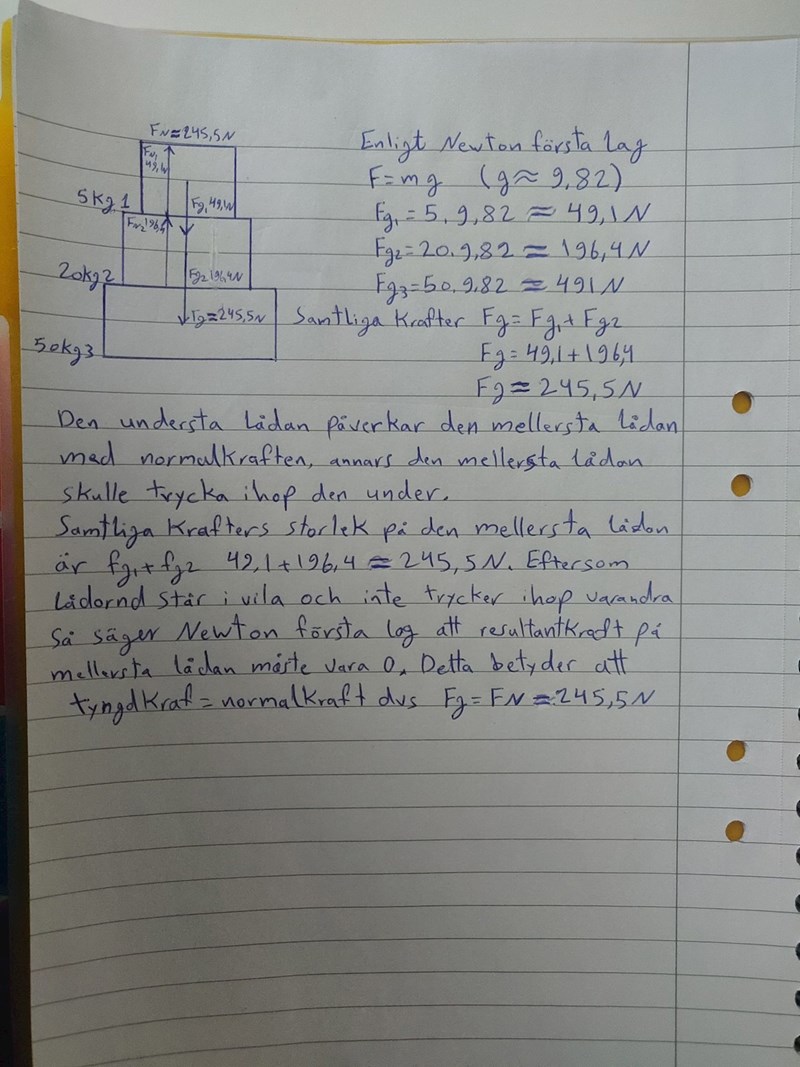 FN≈245,5N
FN1
49,1N
5kg1
Fg1 49,1N
FN2 196,4
20kg2
Fg2 196,4N
Fg≈245,5N
50kg3
Enligt Newton första lag
F=mg (g≈9,82)
Fg1=5.9,82≈49,1N
Fg2=20.9,82≈196,4N
Fg3=50.9,82≈491N
Samtliga krafter Fg=Fg1+Fg2
Fg=49,1+196,4
Fg≈245,5N
Den understa lådan påverkar den mellersta lådan
med normalkraften, annars den mellersta lådan
skulle trycka ihop den under.
Samtliga krafters storlek på den mellersta lådan
är fg1+fg2 49,1+196,4≈245,5N. Eftersom
lådornd står i vila och inte trycker ihop varandra
så säger Newton första lag att resultantkraft på
mellersta lådan måste vara 0. Detta betyder att
tyngdkraf=normalkraft dvs Fg=FN≈245,5N